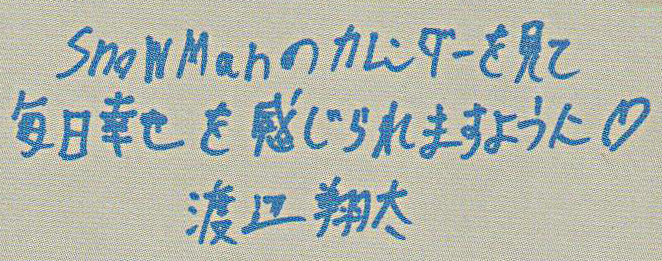 SnowManのカレンダーを見て
毎日幸せを感じられますように♡
渡辺翔太